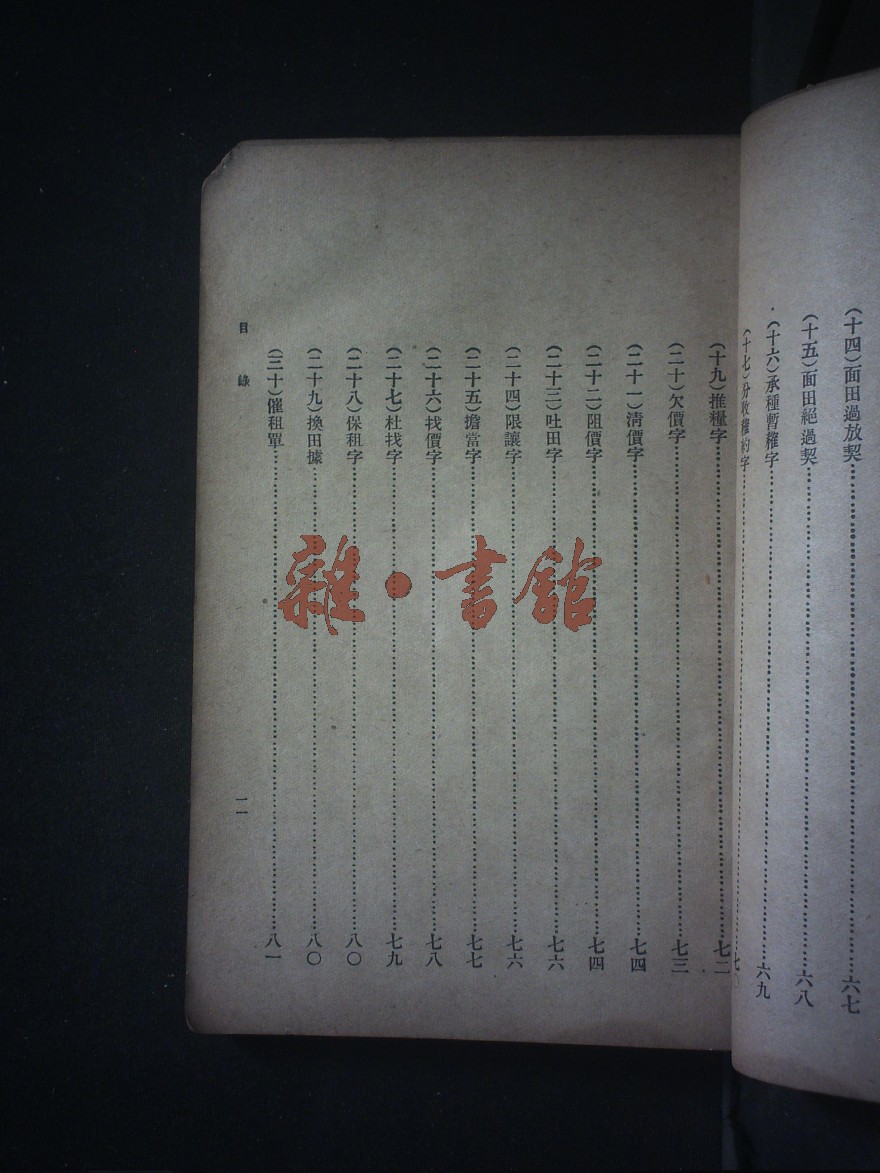 (十四)面田過放契……六七
(十五)面田絕過契……六八
(十六)承種暫權字……六九
(十七)分收權約字……七〇
(十九)推糧字……七二
(二十)欠價字……七三
(二十一)清價字……七四
(二十二)阻價字……七四
(二十三)吐田字……七六
(二十四)限讓字……七六
(二十五)擔當字……七七
(二十六)找價字……七八
(二十七)杜找字……七九
(二十八)保租字……八〇
(二十九)換田據……八〇
(三十)催租單……八一
目錄 一一
雜·書館